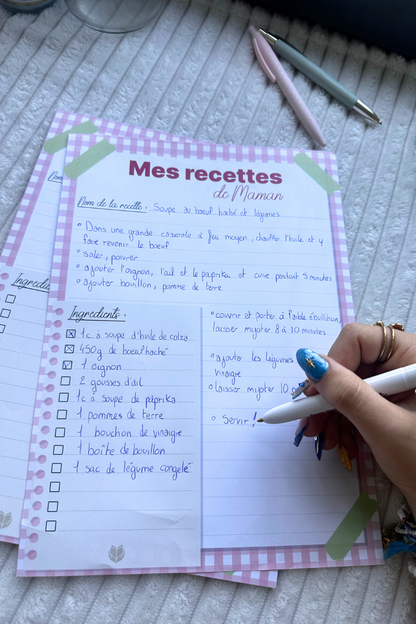 Mes recettes
de Maman
Nom de la recette : Soupe au boeuf haché et légumes
Dans une grande casserole à feu moyen, chauffer l'huile et y
faire revenir le boeuf
saler, poivrer
ajouter l'oignon, l'ail et le paprika et cuire pendant 5 minutes
ajouter bouillon, pomme de terre
Ingrédients :
1c. à soupe d'huile de colza
450g de boeuf haché
1 oignon
2 gousses d'ail
1c à soupe de paprika
1 pommes de terre
1 bouchon de vinaigre
1 boîte de bouillon
1 sac de légume congelé
couvrir et porter à l'aide d'ébullition,
laisser mijoter 8 à 10 minutes
ajouter les légumes
vinaigre
laisser mijoter 10
Servir !
Ingrédie